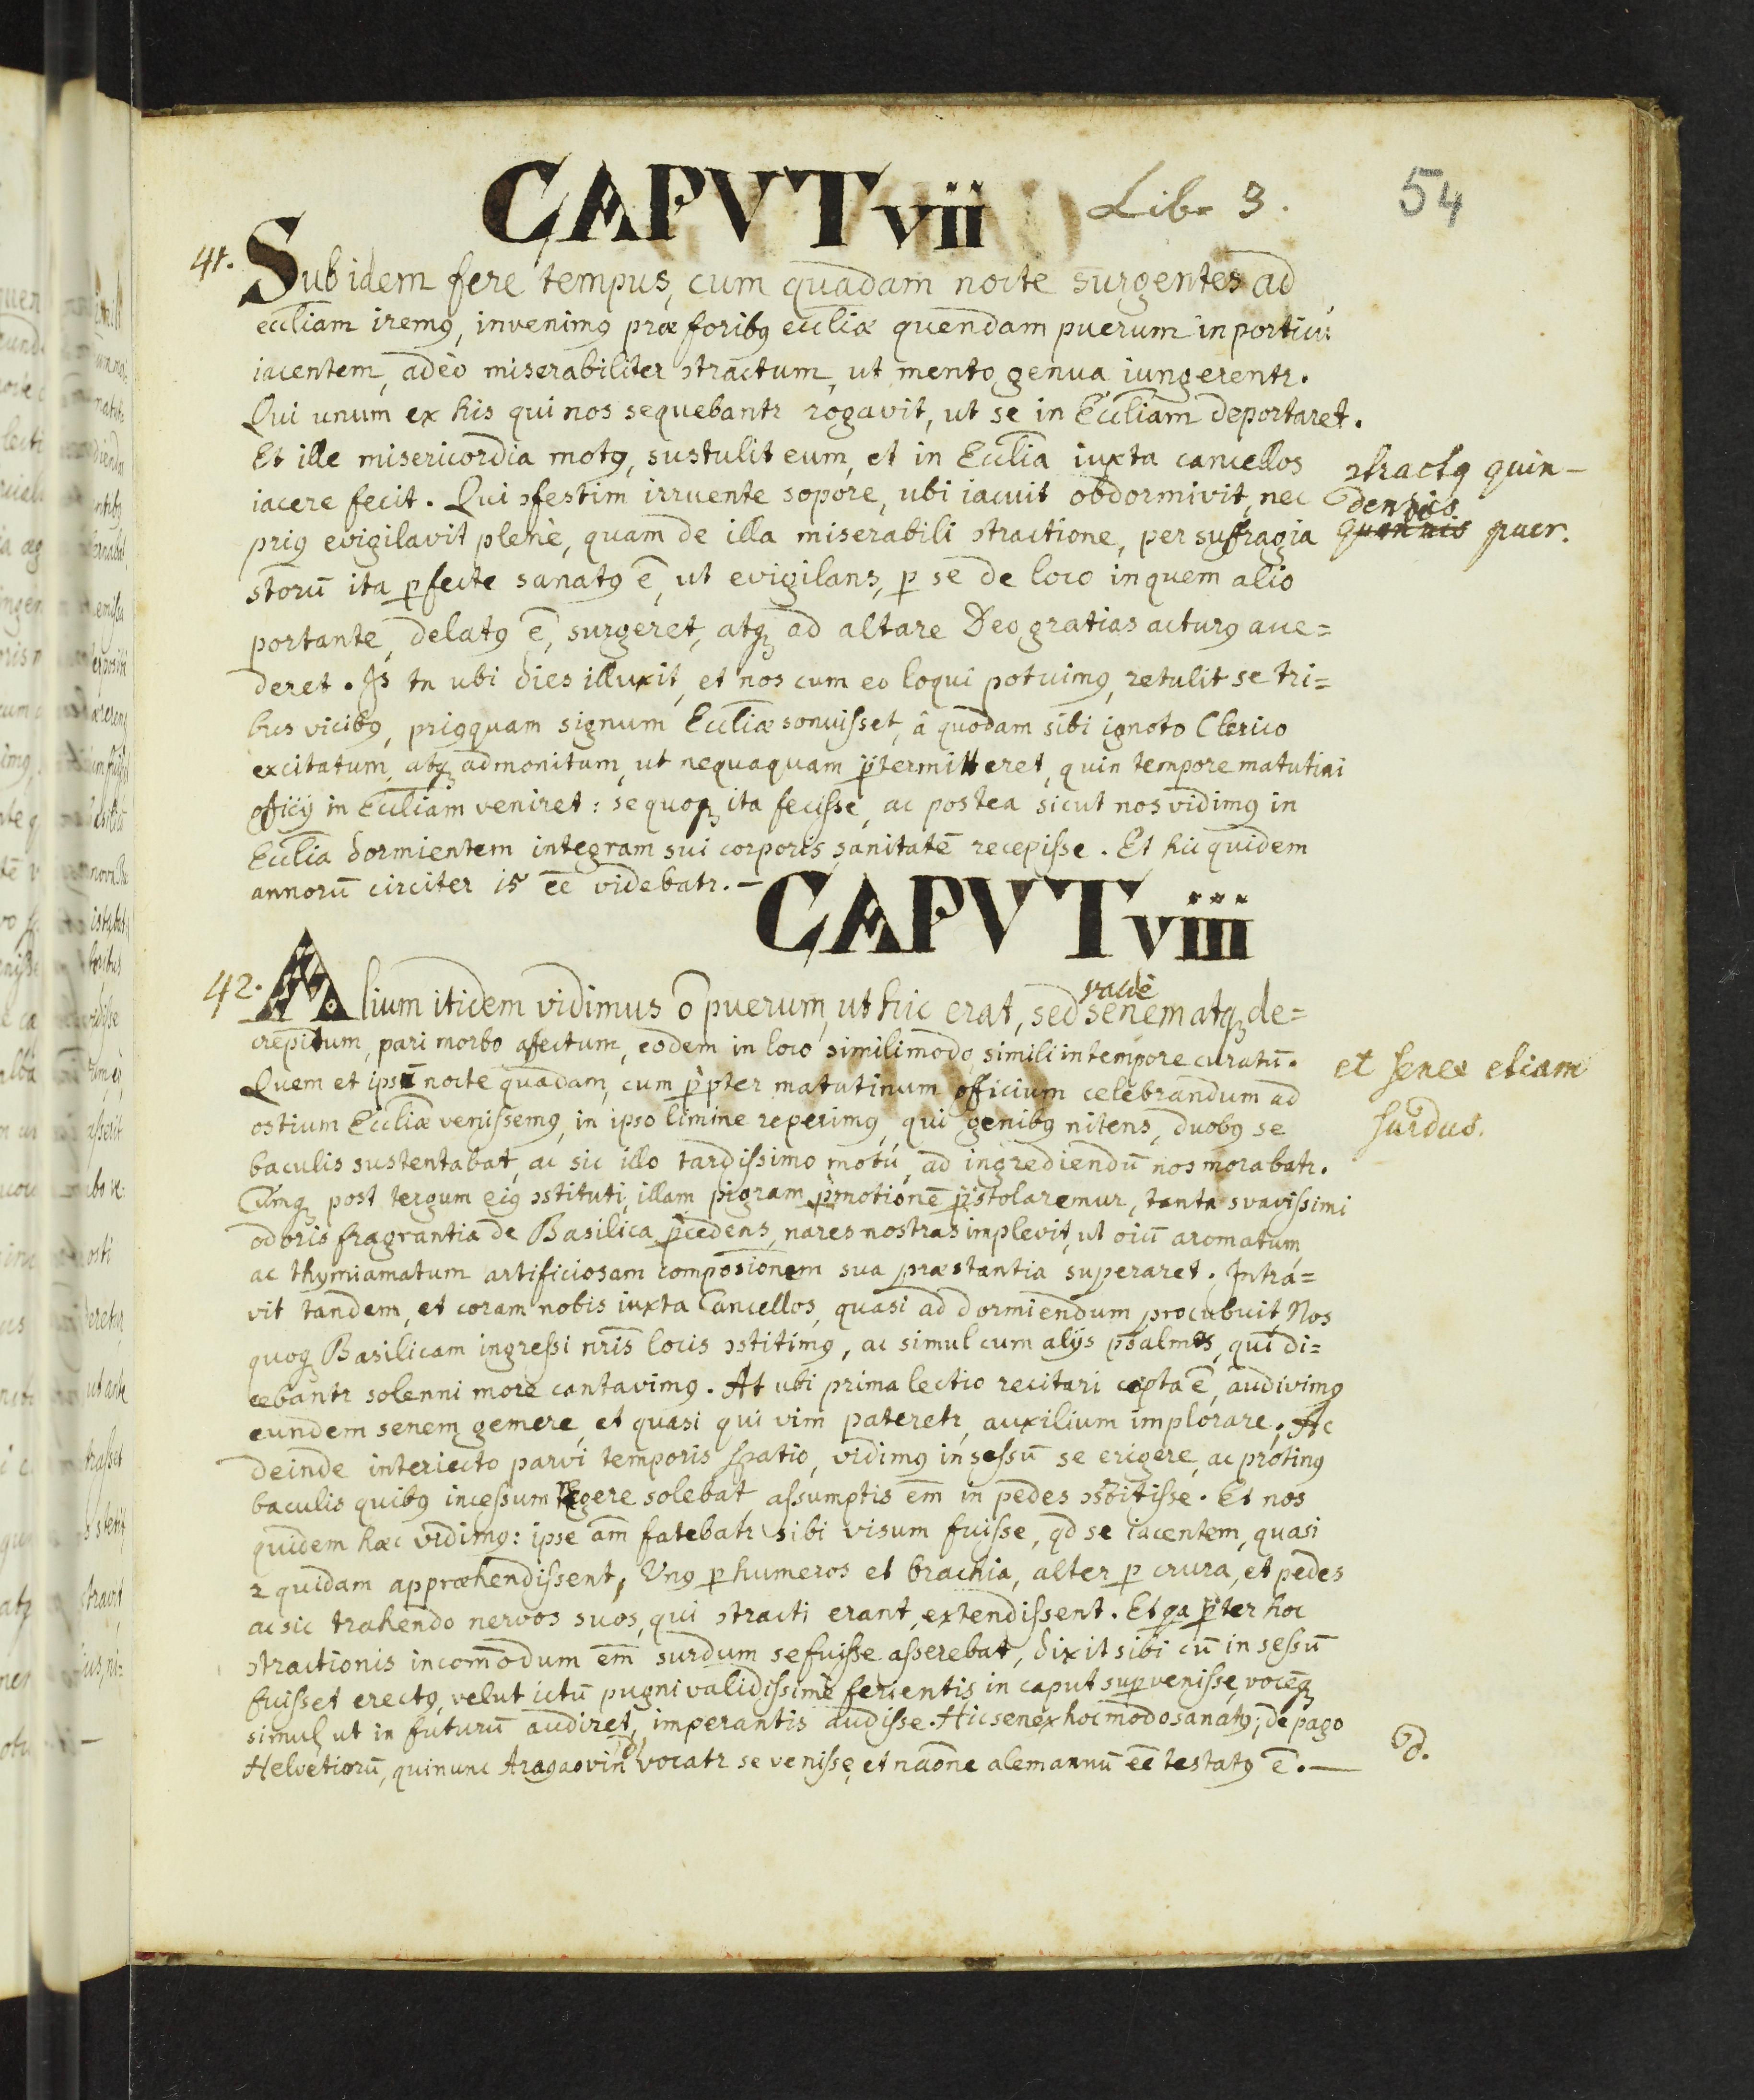 CAPVT vii Lib. 3. 54
41. Sub idem fere tempus, cum quadam nocte surgentes ad
eccliam iremꝰ, invenimꝰ præ foribꝰ eccliæ quendam puerum in porticu
iacentem, adeò miserabiliter ↄtractum, ut mento genua iungerentr.
Qui unum ex his qui nos sequebantr rogavit, ut se in Eccliam deportaret.
Et ille misericordia motꝰ, sustulit eum, et in Ecclia iuxta cancellos
iacere fecit. Qui ↄfestim irruente sopore, ubi iacuit obdormivit, nec
priꝰ evigilavit plenè, quam de illa miserabili ↄtractione, per suffragia
ↄtractꝰ quin-
dennis
puer.
storū ita ꝑfecte sanatꝰ ē, ut evigilans, ꝑ se de loco in quem alio
portante, delatꝰ ē, surgeret, atqꝫ ad altare Deo gratias acturꝰ acce=
deret. Is tn ubi dies illuxit, et nos cum eo loqui potuimꝰ, retulit se tri=
bus vicibꝰ, priꝰquam signum Eccliæ sonuisset, â quodam sibi ignoto Clerico
excitatum, atqꝫ admonitum, ut nequaquam p̄termitteret, quin tempore matutini
officij in Eccliam veniret: se quoqꝫ ita fecisse, ac postea sicut nos vidimꝰ in
Ecclia dormientem integram sui corporis sanitatē recepisse. Et hic quidem
annorū circiter 15 ēē videbatr. —
CAPVT viii
42. Alium itidem vidimus ō puerum, ut hic erat, sed valdè senem atqꝫ de=
crepitum, pari morbo afectum, eodem in loco simili modo, simili in tempore curatū.
et senex etiam
surdus.
Quem et ipsū nocte quadam, cum p̄pter matutinum officium celebrandum ad
ostium Eccliæ venissemꝰ, in ipso limine reperimꝰ, qui genibꝰ nitens, duobꝰ se
baculis sustentabat ac sic illo tardissimo motu, ad ingrediendū nos morabatr.
Cumqꝫ post tergum eiꝰ ↄstituti, illam pigram p̄motionē p̄stolaremur, tanta svavissimi
odoris fragrantia de Basilica p̄cedens, nares nostras implevit, ut oiū aromatum
ac thymiamatum artificiosam composionem sua præstantia superaret. Intra=
vit tandem, et coram nobis iuxta Cancellos, quasi ad dormiendum procubuit, Nos
quoqꝫ Basilicam ingressi nr̄is locis ↄstitimꝰ, ac simul cum alijs psalmos, qui di=
cebantr solenni more cantavimꝰ. At ubi prima lectio recitari cæpta ē, audivimꝰ
eundem senem gemere, et quasi qui vim pateretr, auxilium implorare. Ac
deinde interiecto parvi temporis spatio, vidimꝰ in sessū se erigere, ac protinꝰ
baculis quibꝰ incessum regere solebat assumptis em̄ in pedes ↄstitisse. Et nos
quidem hæc vidimꝰ: ipse am̄ fatebatr sibi visum fuisse, qd se iacentem, quasi
2 quidam appræhendissent, Unꝰ ꝑ humeros et brachia, alter ꝑ crura, et pedes
ac sic trahendo nervos suos, qui ↄtracti erant, extendissent. Et qa p̄ter hoc
ↄtractionis incom̄odum em̄ surdum se fuisse asserebat, dixit sibi cū in sessū
fuisset erectꝰ, velut ictū pugni validissimè ferientis in caput supervenisse, vocēqꝫ
simul ut in futurū audiret, imperantis audisse. Hic senex hoc modo sanatꝰ, de pago
Helvetiorū, qui nunc Aragaovin vocatr se venisse, et naōne alemannū ēē testatꝰ ē. —